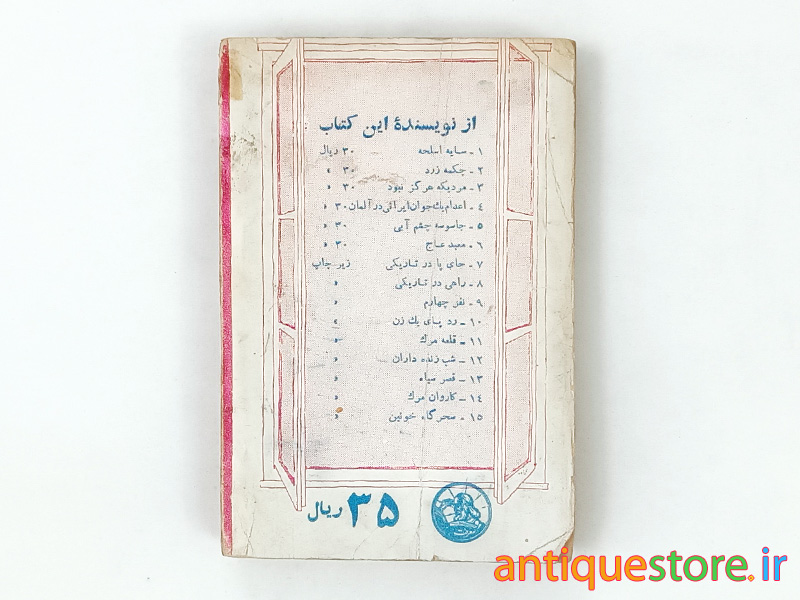 از نویسندهٔ این کتاب
۱ - سایه اسلحه ۳۰ ریال
۲ - چکمه زرد ۳۰ »
۳ - مردیکه هرگز نبود ۳۰ »
۴ - اعدام یك جوان ایرانی در آلمان ۳۰ »
۵ - جاسوسه چشم آبی ۳۰ »
۶ - معبد عاج ۳۰ »
۷ - جای پا در تاریکی زیر چاپ
۸ - راهی در تاریکی »
۹ - نفر چهارم »
۱۰ - رد پای یك زن »
۱۱ - قلعه مرك »
۱۲ - شب زنده داران »
۱۳ - قصر سیاه »
۱۴ - کاروان مرك »
۱۵ - سحرگاه خونین »
۳۵ ریال
antiquestore.ir